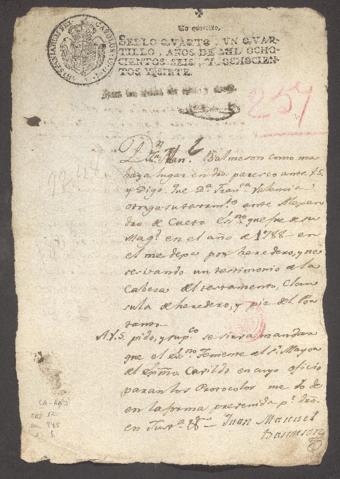 Un quartillo.
SELLO QVARTO, VN QVAR-
TILLO, AÑOS DE MIL OCHO-
CIENTOS SEIS, Y OCHOCIEN-
TOS SIETE.
para los años de ocho y
257
Dn. Juan Balmeson como ma
haya lugar en dro. paresco ante V.S.
y digo: Que Da. Franca. Valencia
otorgó su testamto. ante Alexan
dro de Cueto Esno. que fue de su
Magd. en el año de 1788 en
el me depo. por heredero, y nes
esitando un testimonio de la
Cabeza del testamento, Clau
sula de heredero, y pie del
A V.S. pido, y supco. se sirva mandar
que el Esno. Teniente del Sr. Mayor
del Exmo. Cavildo en cuyo oficio
paran los Protocolos me lo dé
en la forma prevenida pr. dro.
en Justa. &a. Juan Manuel
Balmeson